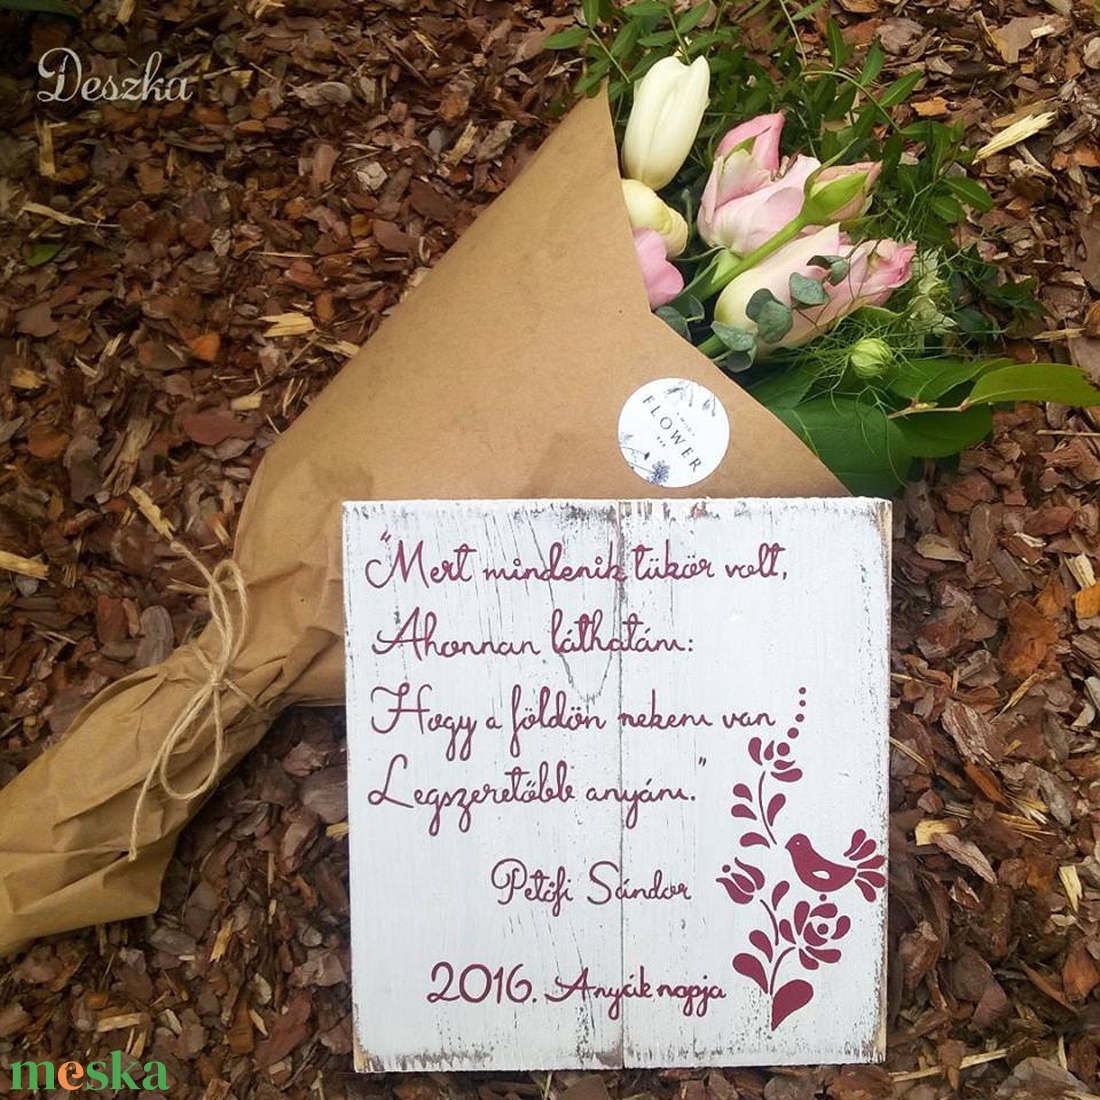 Deszka
FLOWER
"Mert mindenik tükör volt,
Ahonnan láthatám:
Hogy a földön nekem van
Legszeretőbb anyám."
Petőfi Sándor
2016. Anyák napja
meska